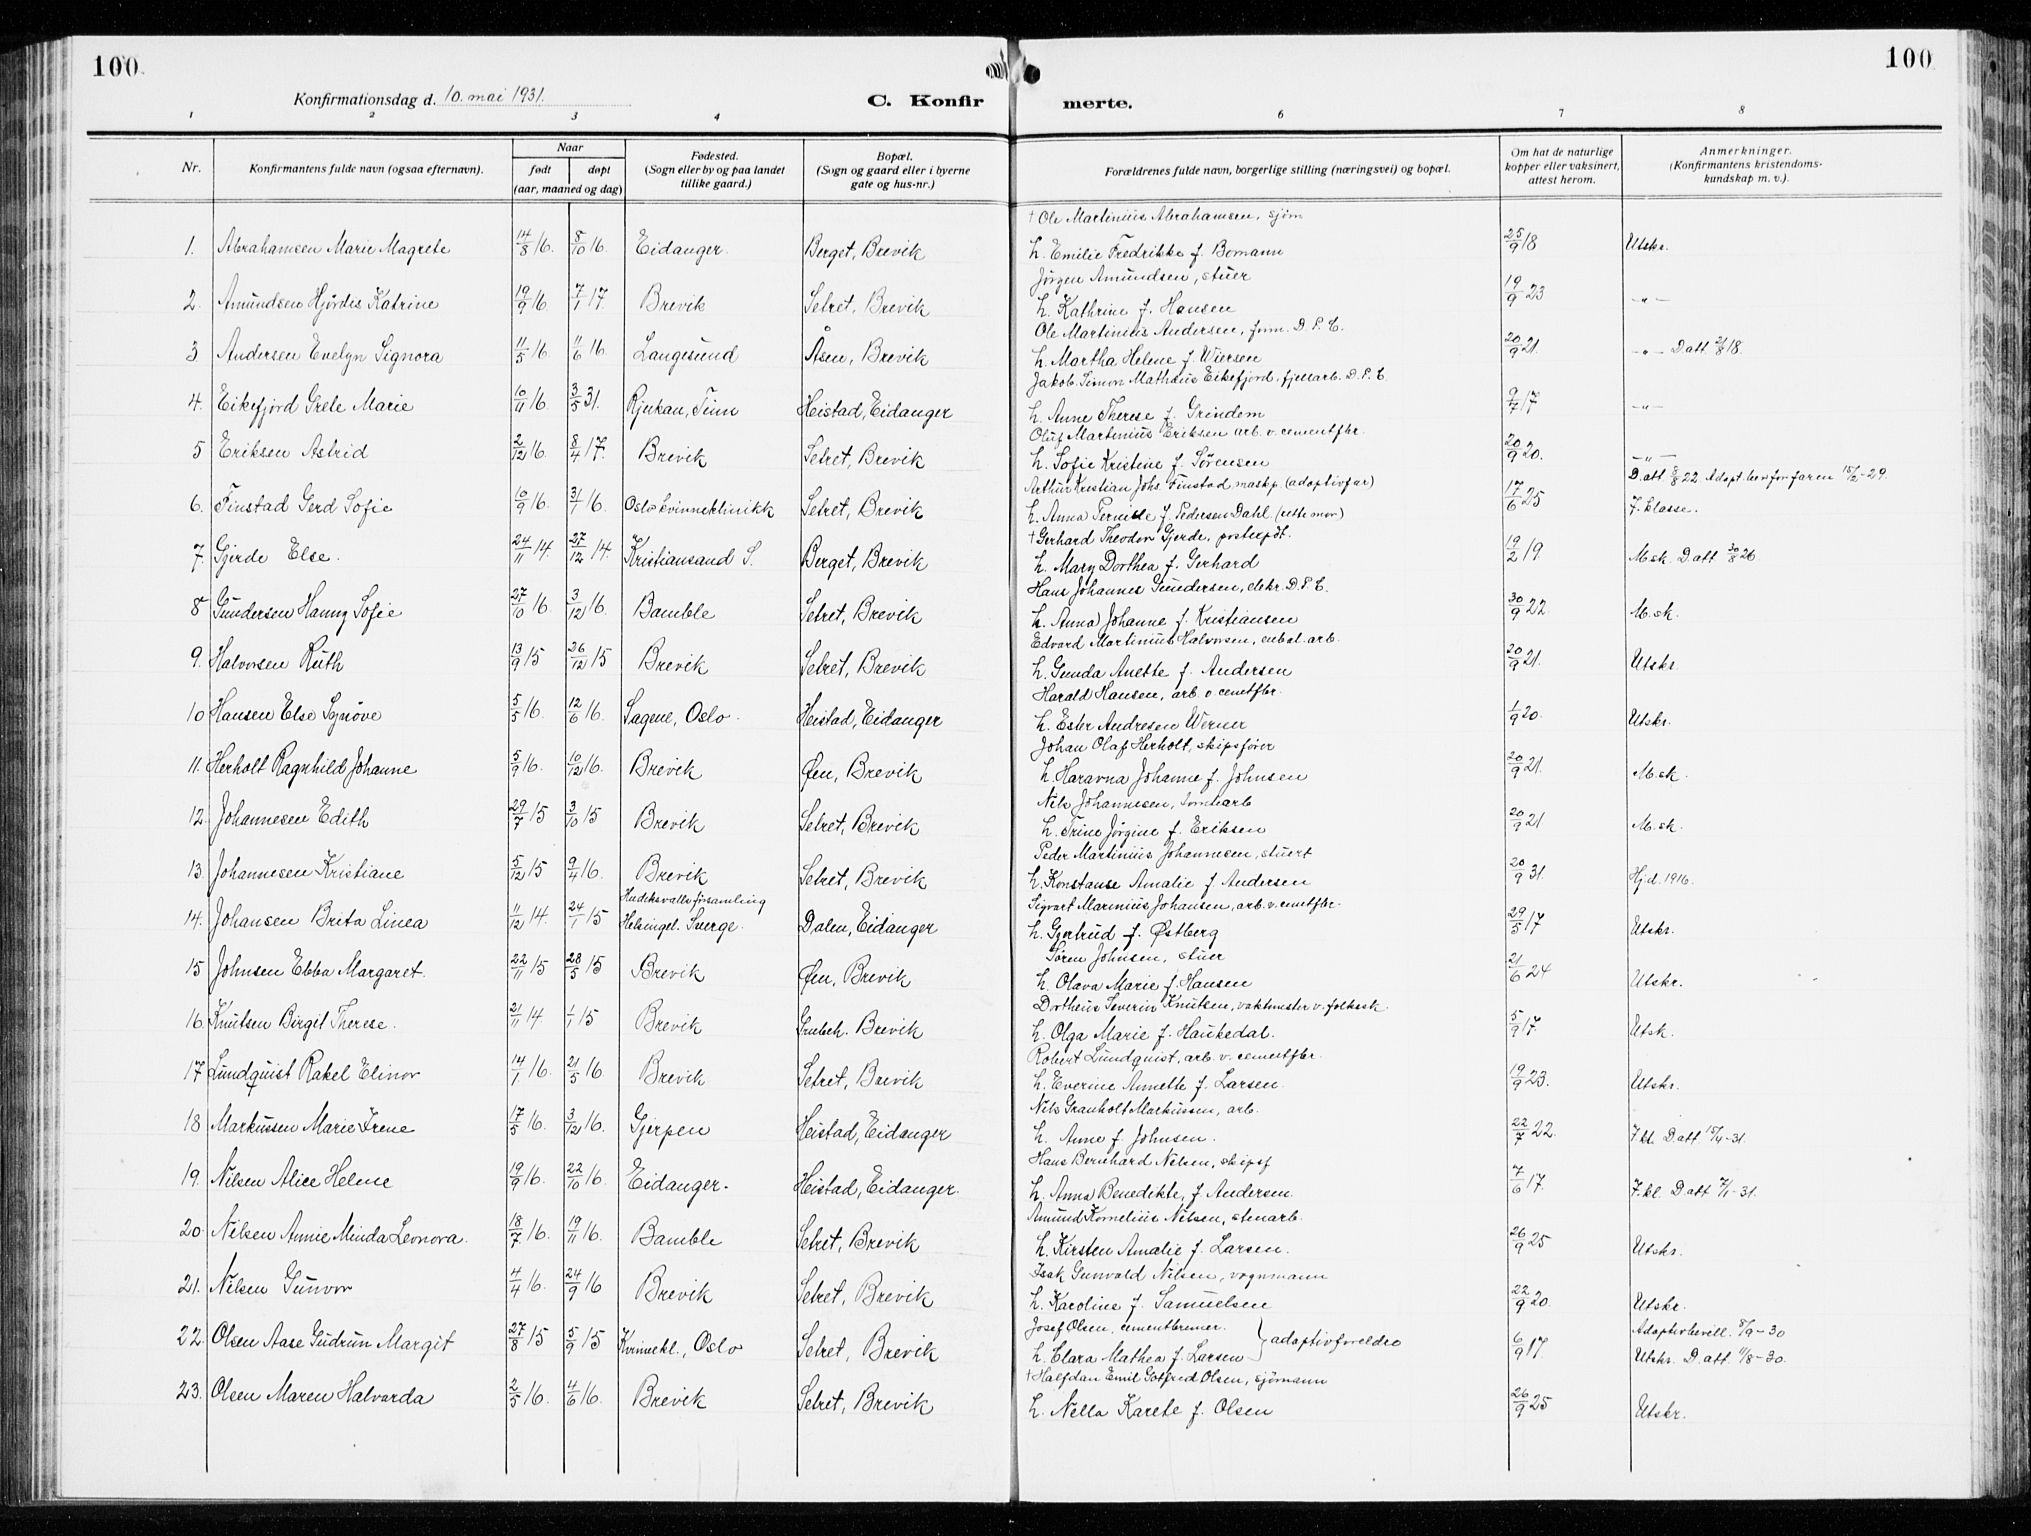 100
100
Konfirmationsdag d. 10. mai 1931.
C. Konfir
merte.
1 2 3 4 6 7 8
Nr.
Konfirmantens fulde navn (ogsaa efternavn).
Naar
født døpt
(aar, maaned og dag)
Fødested.
(Sogn eller by og paa landet
tillike gaard.)
Bopæl.
(Sogn og gaard eller i byerne
gate og hus-nr.)
Forældrenes fulde navn, borgerlige stilling (næringsvei) og bopæl.
Om hat de naturlige
kopper eller vaksinert,
attest herom.
Anmerkninger.
(Konfirmantens kristendoms-
kundskap m. v.).
† Ole Martinius Abrahamsen, sjøm
1. Abrahamsen Marie Magrete 14/8 16. 8/10 16. Eidanger. Berget, Brevik h. Emilie Fredrikke f. Bomann 25/9 18 Utskr.
Jørgen Amundsen, stuer
2. Amundsen Hjørdis Katrine 19/9 16. 7/1 17. Brevik Setret, Brevik h. Kathrine f. Hansen 19/9 23 -"-
Ole Martinius Andersen, form. D.P.C.
3 Andersen Evelyn Signora 11/5 16. 11/6 16. Langesund Åsen, Brevik h. Martha Helene f. Wiersen 20/9 21. -"- D att. 21/8 18.
Jakob Simon Mathæus Eikefjord, fjellarb. D.P.C.
4. Eikefjord Grete Marie 10/11 16. 3/5 31. Rjukan, Tinn Heistad, Eidanger h. Anne Therese f. Grindem 9/7 17 -"-
Oluf Martinius Eriksen arb. v. cementfbr.
5 Eriksen Astrid 2/12 16. 8/4 17. Brevik Setret, Brevik h. Sofie Kristine f. Sørensen 20/9 20. -"-
Arthur Kristian Johs. Finstad maskp. (adoptivfar) D. att. 8/8 22 Adopt. bev for faren 15/2-29.
6. Finstad Gerd Sofie 10/9 16. 31/1 16. Oslo kvinneklinikk Setret, Brevik h. Anna Pernille f. Pedersen Dahl. (rette mor) 17/6 25 7. klasse.
† Gerhard Theodor Gjerde, postexpdt.
7. Gjerde Else. 24/11 14. 27/12 14. Kristiansand S. Berget, Brevik h. Mary Dorthea f. Gerhard 19/2 19. M.sk. D. att 30/8 26
Hans Johannes Gundersen, elekr. D.P.C.
8 Gundersen Hanny Sofie 27/10 16. 3/12 16. Bamble Setret, Brevik h. Anna Johanne f. Kristiansen 30/9 22. M.sk.
Edvard Martinius Halvorsen, enbal. arb.
9. Halvorsen Ruth 13/9 15 26/12 15 Brevik Setret, Brevik h. Gunda Anette f. Andersen 20/9 21. Utskr
Harald Hansen, arb v cemtfbr.
10 Hansen Else Synøve 5/5 16. 12/6 16. Sagene, Oslo. Heistad, Eidanger h. Ester Andresen Werner 1/9 20. Utskr.
Johan Olaf Herholt, skipsfører
11. Herholt Ragnhild Johanne 5/9 16. 10/12 16. Brevik Øen, Brevik h. Haravna Johanne f. Johnsen 20/9 21. M.sk.
Nils Johannesen, tomtearb
12. Johannesen Edith 29/7 15 3/10 15 Brevik Setret, Brevik h. Trine Jørgine f. Eriksen 20/9 21 M.sk.
Peder Martinius Johannesen, stuert
13. Johannesen Kristiane 5/12 15 9/4 16. Brevik Setret, Brevik h. Konstanse Amalie f Andersen 20/9 31. Hj.d. 1916.
Hudiksvalls församling Sigvart Marinius Johansen, arb. v. cemtfbr.
14. Johansen Brita Linea 11/12 14. 24/1 15 Helsingel. Sverge. Dalen, Eidanger h. Gjertrud f. Østberg 29/5 17 Utskr.
Søren Johnsen, stuer
15 Johnsen Ebba Margaret. 22/11 15 28/5 15 Brevik Øen, Brevik h. Olava Marie f. Hansen 21/6 24 Utskr.
Dortheus Severin Knutsen, vaktmester v. folkesk.
16. Knutsen Birgit Therese. 21/11 14 1/1 15 Brevik Brevik h. Olga Marie f. Haukedal. 5/9 17. Utsk.
Robert Lundquist, arb. v. cementfbr.
17 Lundquist Rakel Elinor 14/1 16. 21/5 16. Brevik Setret, Brevik h. Everine Annette f. Larsen. 19/9 23. Utskr.
Nils Granholt Markussen, arb.
18 Markussen Marie Irene 17/5 16. 3/12 16. Gjerpen Heistad, Eidanger h. Anne f. Johnsen. 22/7 22. 7. kl. D. att 15/4-31.
Hans Bernhard Nilsen, skipsf
19. Nilsen Alice Helene 19/9 16. 22/10 16. Eidanger. Heistad, Eidanger. h. Anna Benedikte, f Andersen. 7/6 17. 7. kl. D att 7/1-31.
Amund Kornelius Nilsen, stenarb.
20. Nilsen Annie Minda Leonora. 18/7 16. 19/11 16. Bamble Setret, Brevik h. Kirsten Amalie f. Larsen. 26/9 25 Utskr.
Isak Gunvald Nilsen, vognmann
21. Nilsen Gunvor 4/4 16. 24/9 16 Brevik Setret, Brevik h. Karoline f. Samuelsen 22/9 20. Utskr.
Josef Olsen, cementbrenner. } adoptivforeldre Adoptivbevill. 8/9-30
22. Olsen Aase Gudrun Margit 27/8 15 5/9 15 Kvinnekl., Oslo Setret, Brevik h. Clara Mathea f. Larsen 6/9 17. Utskr. D. att. 11/8-30.
† Halfdan Emil Gotfred Olsen, sjømann
23. Olsen Maren Halvarda 2/5 16. 4/6 16. Brevik Setret, Brevik h. Nella Karete f. Olsen 26/9 25 Utskr.